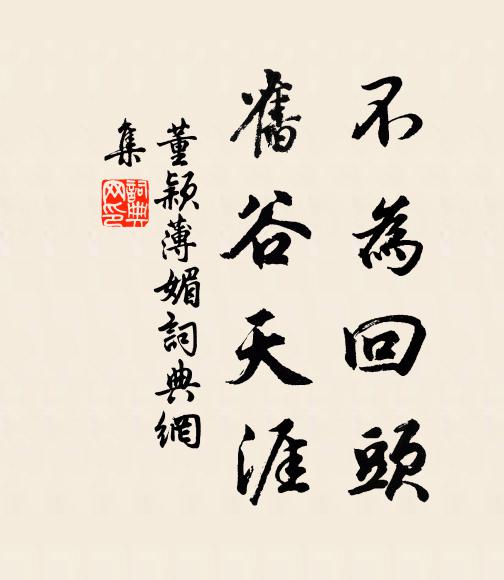 不為回頭
舊谷天涯
董穎薄媚詞典網
集
詞典網印